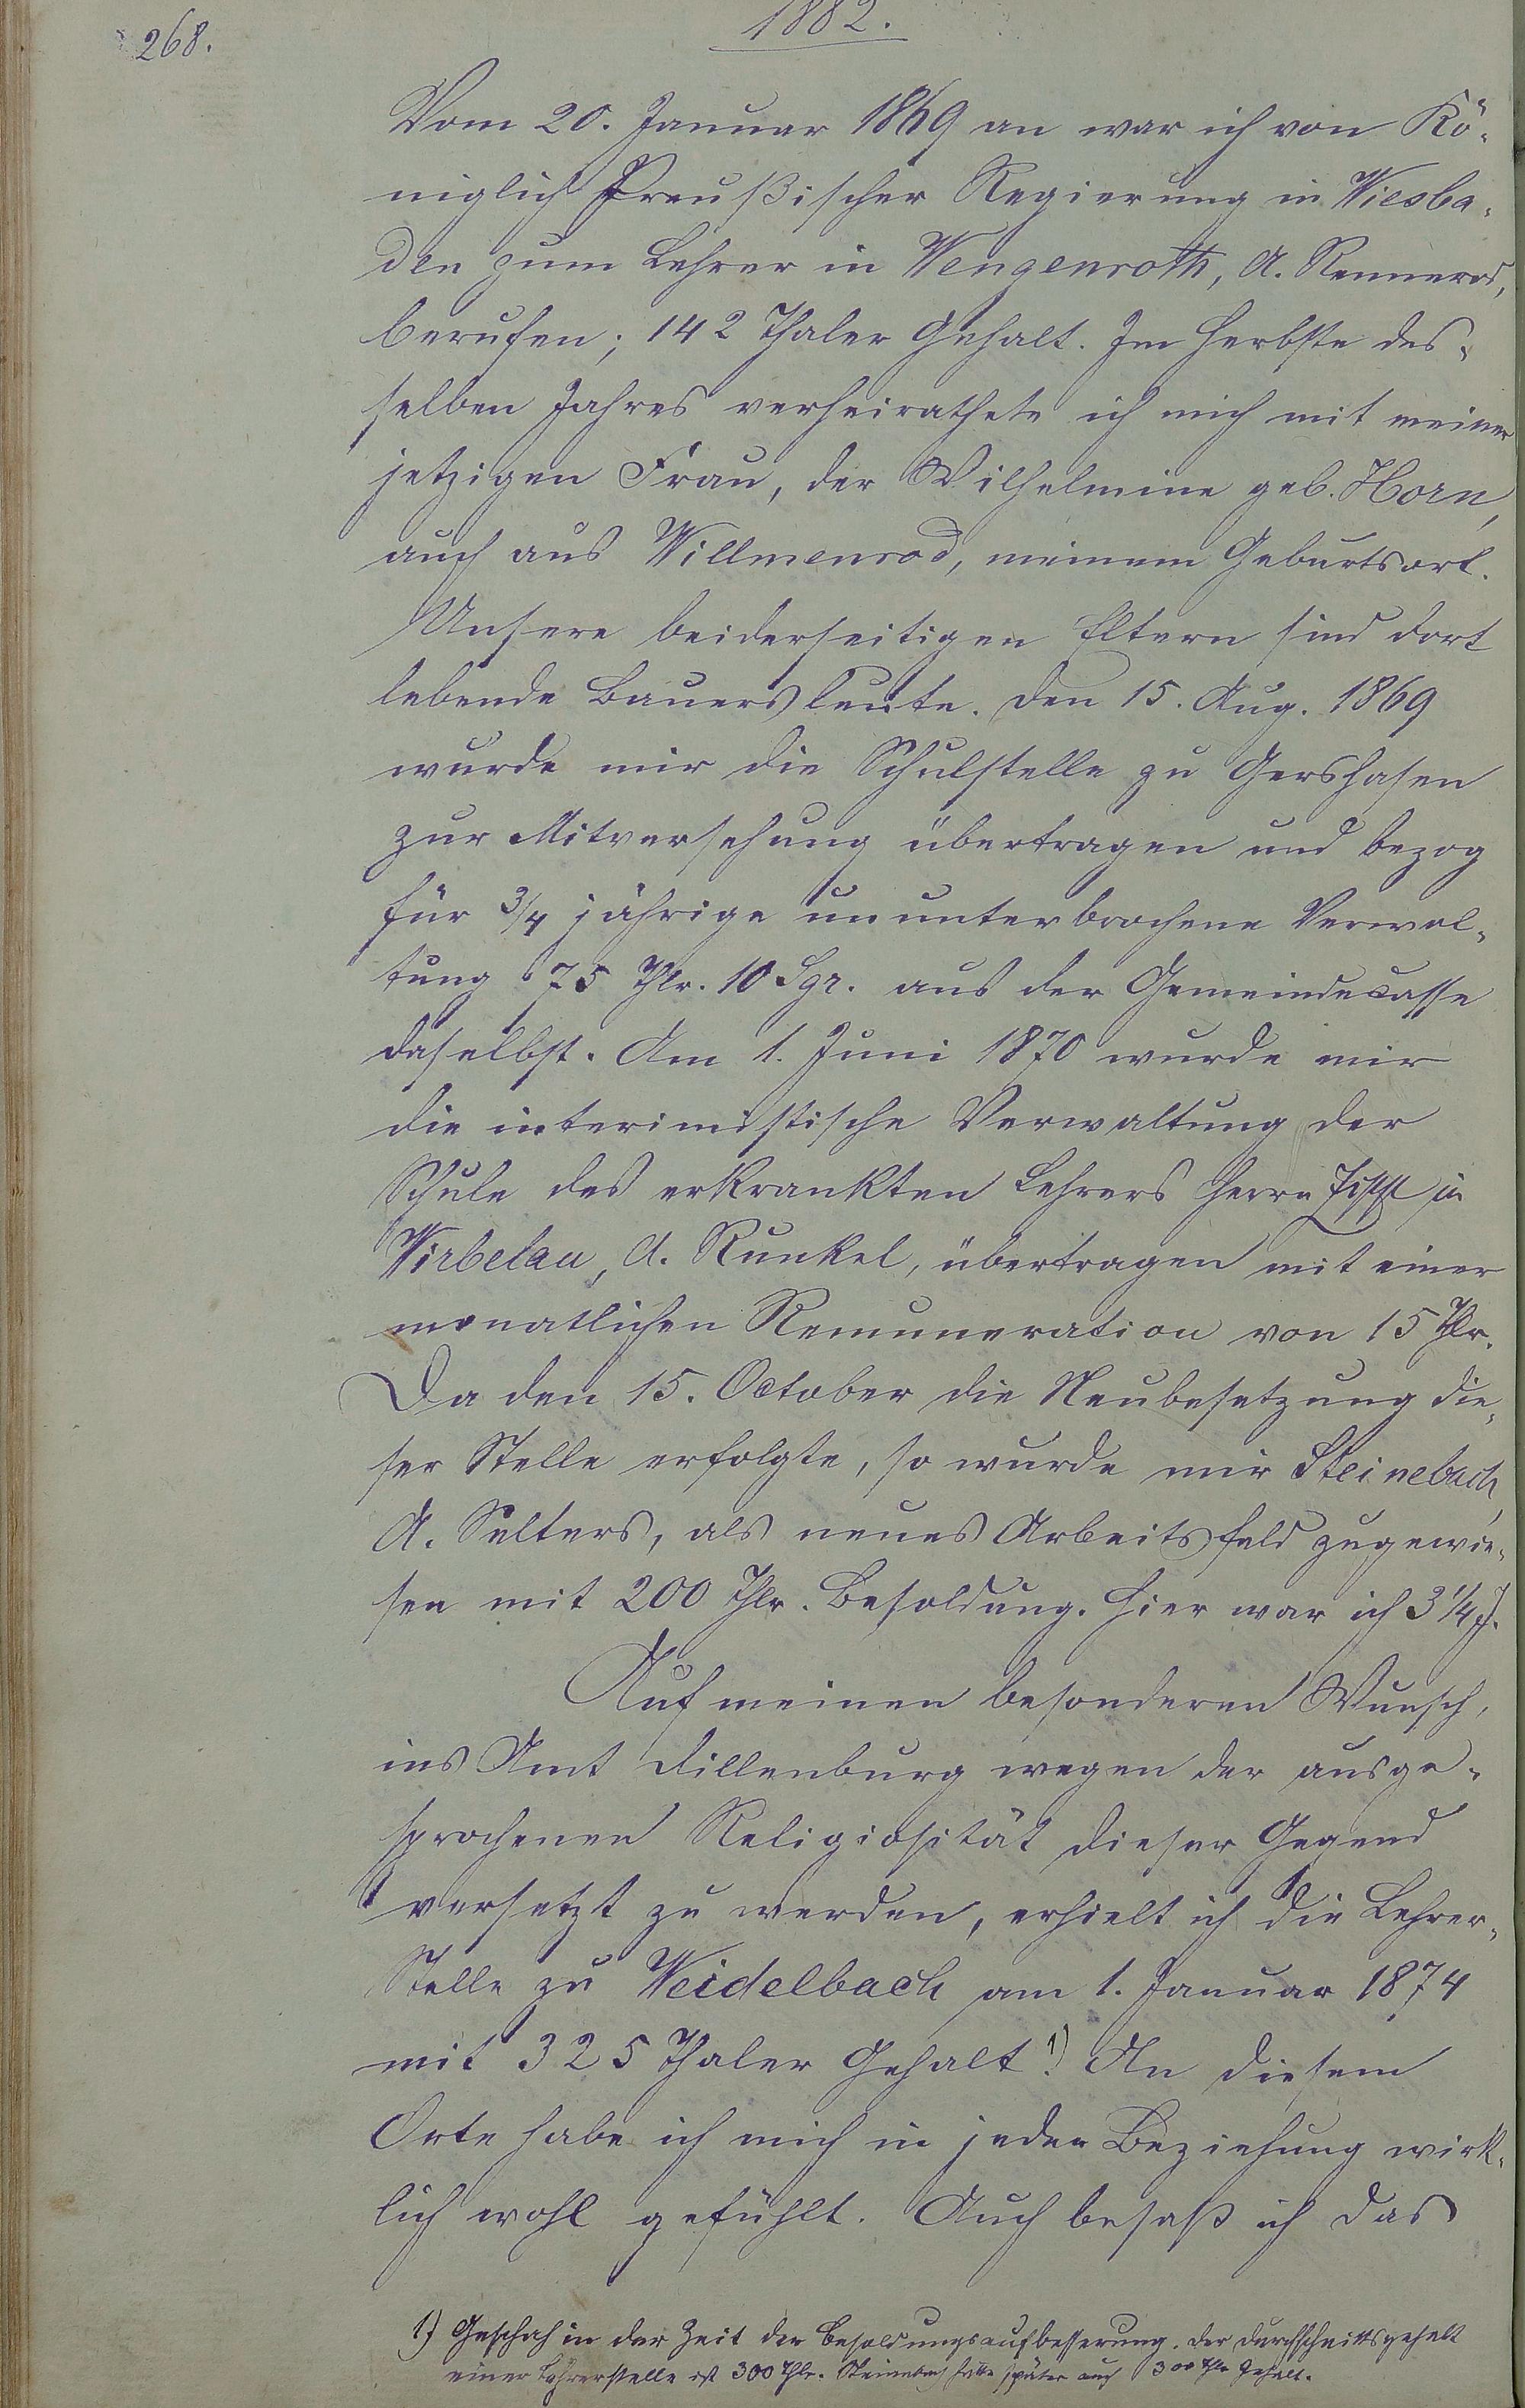 268.
1882.
Vom 20. Januar 1869 an war ich von Kö-
niglich Preußischer Regierung in Wiesba-
den zum Lehrer in Wengenroth, A. Rennerod,
berufen; 142 Thaler Gehalt. Im Herbste des-
selben Jahres verheirathete ich mich mit meiner
jetzigen Frau, der Wilhelmine geb. Horn,
auch aus Willmenrod, meinem Geburtsort.
Unsere beiderseitigen Eltern sind dort
lebende Bauersleute. Den 15. Aug. 1869
wurde mir die Schulstelle zu Gershasen
zur Mitversehung übertragen und bezog
für 3/4 jährige ununterbrochene Verwal-
tung 75 Thlr. 10 Sgr. aus der Gemeindecasse
daselbst. Am 1. Juni 1870 wurde mir
die interimistische Verwaltung der
Schule des erkrankten Lehrers Herrn in
Wirbelau, A. Runkel, übertragen mit einer
monatlichen Remuneration von 15 Thlr.
Da den 15. October die Neubesetzung die-
ser Stelle erfolgte, so wurde mir Steinebach,
A. Selters, als neues Arbeitsfeld zugewie-
sen mit 200 Thlr. Besoldung. Hier war ich 3 1/4 J.
Auf meinen besonderen Wunsch,
ins Amt Dillenburg wegen der ausge-
sprochenen Religiosität dieser Gegend
versetzt zu werden, erhielt ich die Lehrer-
Stelle zu Weidelbach am 1. Januar 1874
mit 325 Thaler Gehalt 1). An diesem
Orte habe ich mich in jeder Beziehung wirk-
lich wohl gefühlt. Auch besaß ich das
1) Geschah in der Zeit der Besoldungsaufbesserung. Der Durchschnittsgehalt
einer Lehrerstelle ist 300 Thlr. Steinebach hatte später auch 300 Thlr Gehalt.